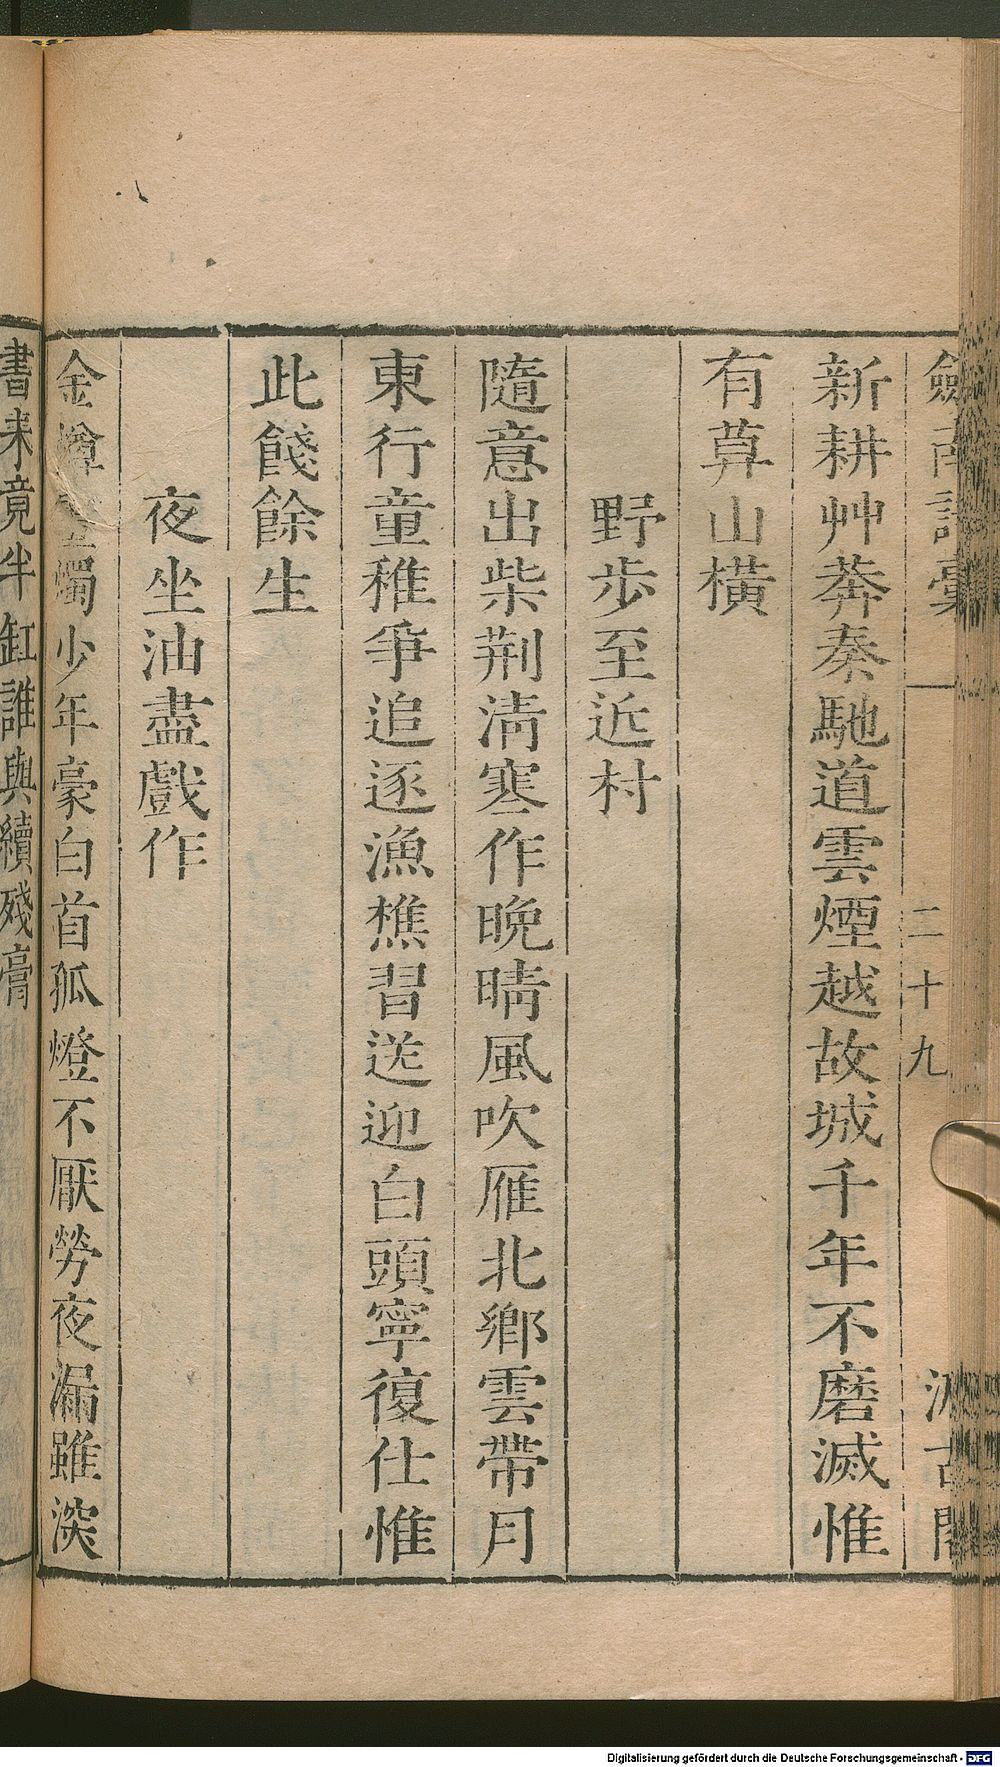 劒南詩稾 二十九 汲古閣
新耕艸莽秦馳道雲煙越故城千年不磨滅惟
有草山橫
野步至近村
隨意出柴荆清寒作晚晴風吹雁北鄉雲帶月
東行童稚爭追逐漁樵習送迎白頭寧復仕惟
此餞餘生
夜坐油盡戲作
金樽燭少年豪白首孤燈不厭勞夜漏雖深
書未竟半缸誰與續殘膏
Digitalisierung gefördert durch die Deutsche Forschungsgemeinschaft - DFG